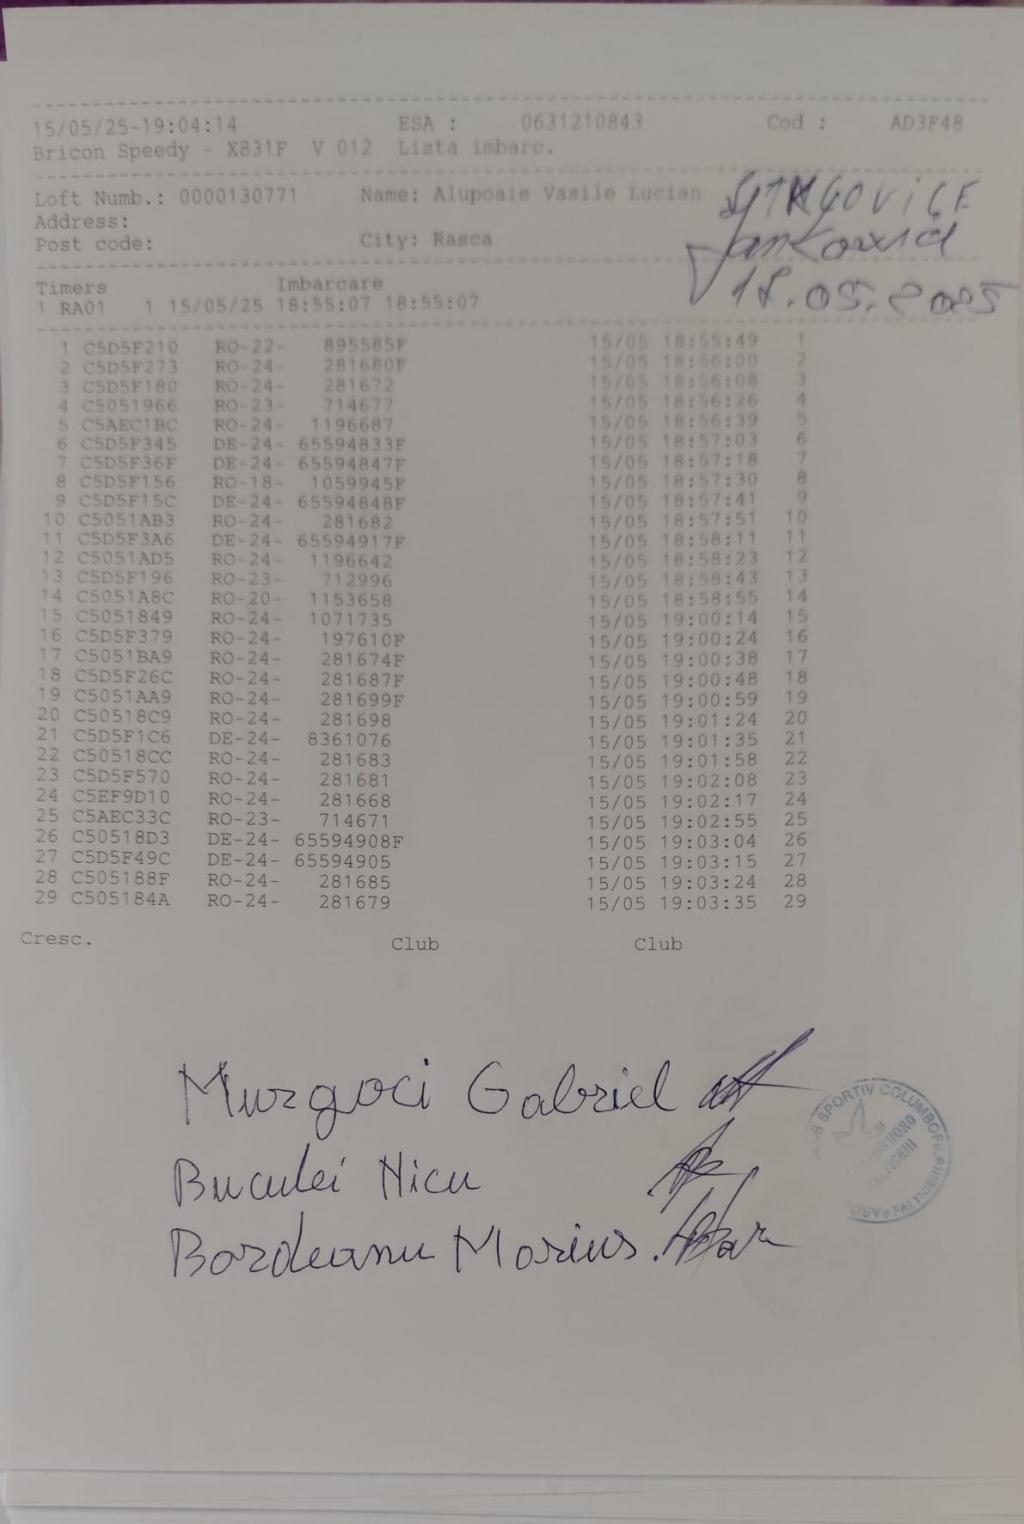 15/05/25-19:04:14 ESA : 0631210843 Cod : AD3F48
Bricon Speedy - X831F V 012 Lista imbarc.
Loft Numb.: 0000130771 Name: Alupoaie Vasile Lucian
Address:
Post code: City: Rasca
18.05.2025
Timers Imbarcare
1 RA01 1 15/05/25 18:55:07 18:55:07
1 C5D5F210 RO-22- 895585F 15/05 18:55:49 1
2 C5D5F273 RO-24- 281680F 15/05 18:56:00 2
3 C5D5F180 RO-24- 281672 15/05 18:56:08 3
4 C5051966 RO-23- 714677 15/05 18:56:26 4
5 C5AEC1BC RO-24- 1196687 15/05 18:56:39 5
6 C5D5F345 DE-24- 65594833F 15/05 18:57:03 6
7 C5D5F36F DE-24- 65594847F 15/05 18:57:18 7
8 C5D5F156 RO-18- 1059945F 15/05 18:57:30 8
9 C5D5F15C DE-24- 65594848F 15/05 18:57:41 9
10 C5051AB3 RO-24- 281682 15/05 18:57:51 10
11 C5D5F3A6 DE-24- 65594917F 15/05 18:58:11 11
12 C5051AD5 RO-24- 1196642 15/05 18:58:23 12
13 C5D5F196 RO-23- 712996 15/05 18:58:43 13
14 C5051A8C RO-20- 1153658 15/05 18:58:55 14
15 C5051849 RO-24- 1071735 15/05 19:00:14 15
16 C5D5F379 RO-24- 197610F 15/05 19:00:24 16
17 C5051BA9 RO-24- 281674F 15/05 19:00:38 17
18 C5D5F26C RO-24- 281687F 15/05 19:00:48 18
19 C5051AA9 RO-24- 281699F 15/05 19:00:59 19
20 C50518C9 RO-24- 281698 15/05 19:01:24 20
21 C5D5F1C6 DE-24- 8361076 15/05 19:01:35 21
22 C50518CC RO-24- 281683 15/05 19:01:58 22
23 C5D5F570 RO-24- 281681 15/05 19:02:08 23
24 C5EF9D10 RO-24- 281668 15/05 19:02:17 24
25 C5AEC33C RO-23- 714671 15/05 19:02:55 25
26 C50518D3 DE-24- 65594908F 15/05 19:03:04 26
27 C5D5F49C DE-24- 65594905 15/05 19:03:15 27
28 C505188F RO-24- 281685 15/05 19:03:24 28
29 C505184A RO-24- 281679 15/05 19:03:35 29
Cresc. Club Club
Murgoci Gabriel
Buculei Nicu
Bordeanu Marius
SPORTIV COLUMBOFIL
FALTICENI